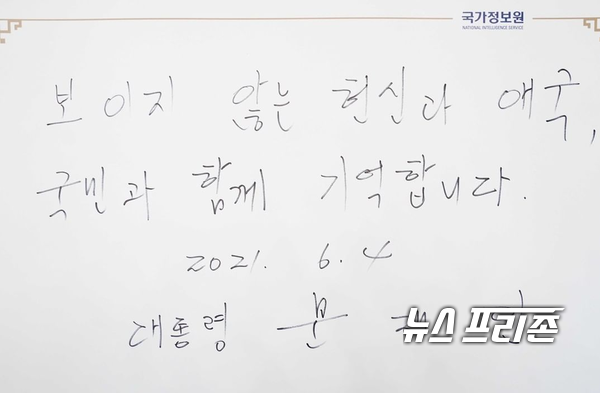 국가정보원
NATIONAL INTELLIGENCE SERVICE
보이지 않는 헌신과 애국,
국민과 함께 기억합니다.
2021. 6. 4
대통령 문
뉴스프리존